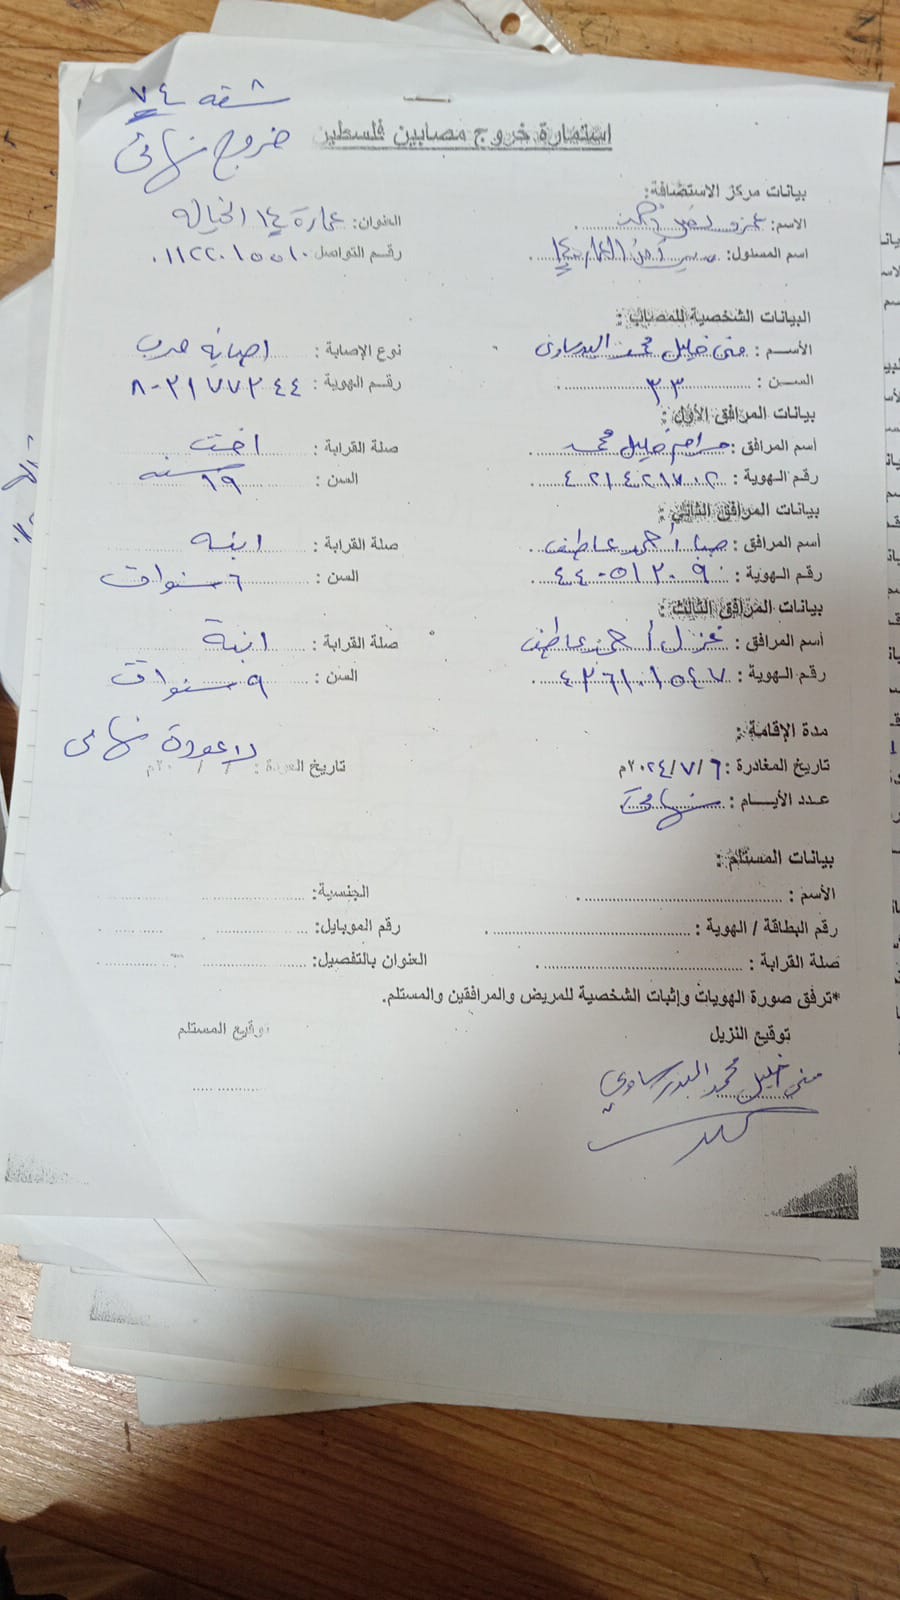 شقه ٧٤
خروج نهائى
استمارة خروج مصابين فلسطين
بيانات مركز الاستضافة:
الاسم: عمرو العنوان: عمارة ١٤ الخياله
اسم المسئول: أمن العمارة ١٤ رقم التواصل ٠١١٢٢٠١٥٥١٠
البيانات الشخصية للمصاب :
الأسم : منى خليل محمد البدرساوى نوع الإصابة : اصابه حرب
السن : ٣٣ رقم الهوية : ٨٠٢١٧٧٢٤٤
بيانات المرافق الأول :
أسم المرافق : مرام خليل محمد صلة القرابة : اخت
رقم الهوية : ٤٢١٤٢١٧٠٢ السن : ١٩ سنه
بيانات المرافق الثاني :
أسم المرافق : صبا أحمد عاطف صلة القرابة : ابنه
رقم الهوية : ٤٤٠٥١٢٠٩٠ السن : ٦ سنوات
بيانات المرافق الثالث :
أسم المرافق : غزل أحمد عاطف صلة القرابة : ابنة
رقم الهوية : ٤٢٦١٠١٥٤٧ السن : ٩ سنوات
لا عودة نهائى
مدة الإقامة :
تاريخ المغادرة : ٢٠٢٤/٧/٦م تاريخ العودة : / / ٢٠م
عدد الأيام : نهائى
بيانات المستلم :
الأسم : الجنسية:
رقم البطاقة / الهوية : رقم الموبايل:
صلة القرابة : العنوان بالتفصيل:
*ترفق صورة الهويات وإثبات الشخصية للمريض والمرافقين والمستلم.
توقيع النزيل توقيع المستلم
منى خليل محمد البدرساوي